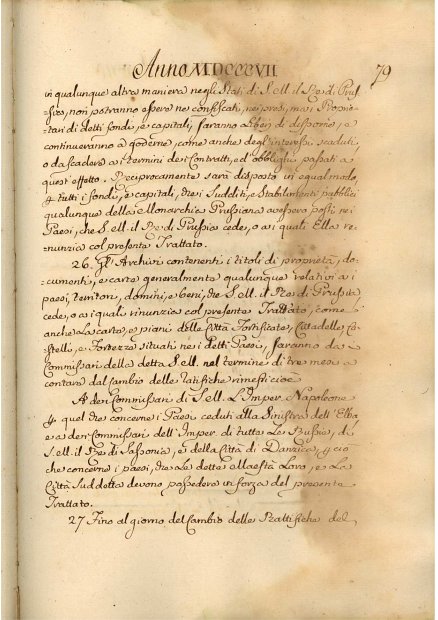 Anno MDCCCVII
79
in qualunque altra maniera negli Stati di S. M. il Re di Prus-
sia, non potranno essere ne confiscati, ne presi, ma i Proprie-
tari di detti fondi, e capitali, saranno liberi di disporne, e
continueranno a goderne, come anche degl'interessi scaduti,
o da scadere ai termini dei Contratti, ed obblighi passati a
quest'effetto. Reciprocamente sarà disposto in equal modo,
p tutti i fondi, e capitali, che i Sudditi, e Stabilimenti pubblici
qualunque della Monarchia Prussiana avessero posti nei
Paesi, che S. M. il Re di Prussia cede, o a i quali Ella re-
nunzia col presente Trattato.
26. Gli Archivi contenenti i titoli di proprietà, do-
cumenti, e carte generalmente qualunque relativi a i
paesi, territori, domini, e beni, che S. M. il Re di Prussia
cede, o a i quali rinunzia col presente Trattato, come
anche le carte, e piani delle Città Fortificate, Cittadelle Ca-
stelli, e Fortezze situati nei detti Paesi, saranno da
Commissari della detta S. M. nel termine di tre mesi a
contare dal cambio delle ratifiche rimessi cioè
A dei Commissari di S. M. L'Imper. Napoleone
p quel che concerne i Paesi ceduti alla Sinistra dell'Elba
e a dei Commissari dell'Imper. di tutte Le Russie, di
S. M. il Re di Sassonia, e della Città di Danzica, p ciò
che concerne i paesi, che Le dette Maestà Loro, e La
Città Suddetta devono possedere in forza del presente
Trattato.
27. Fino al giorno del Cambio delle Rattifiche del